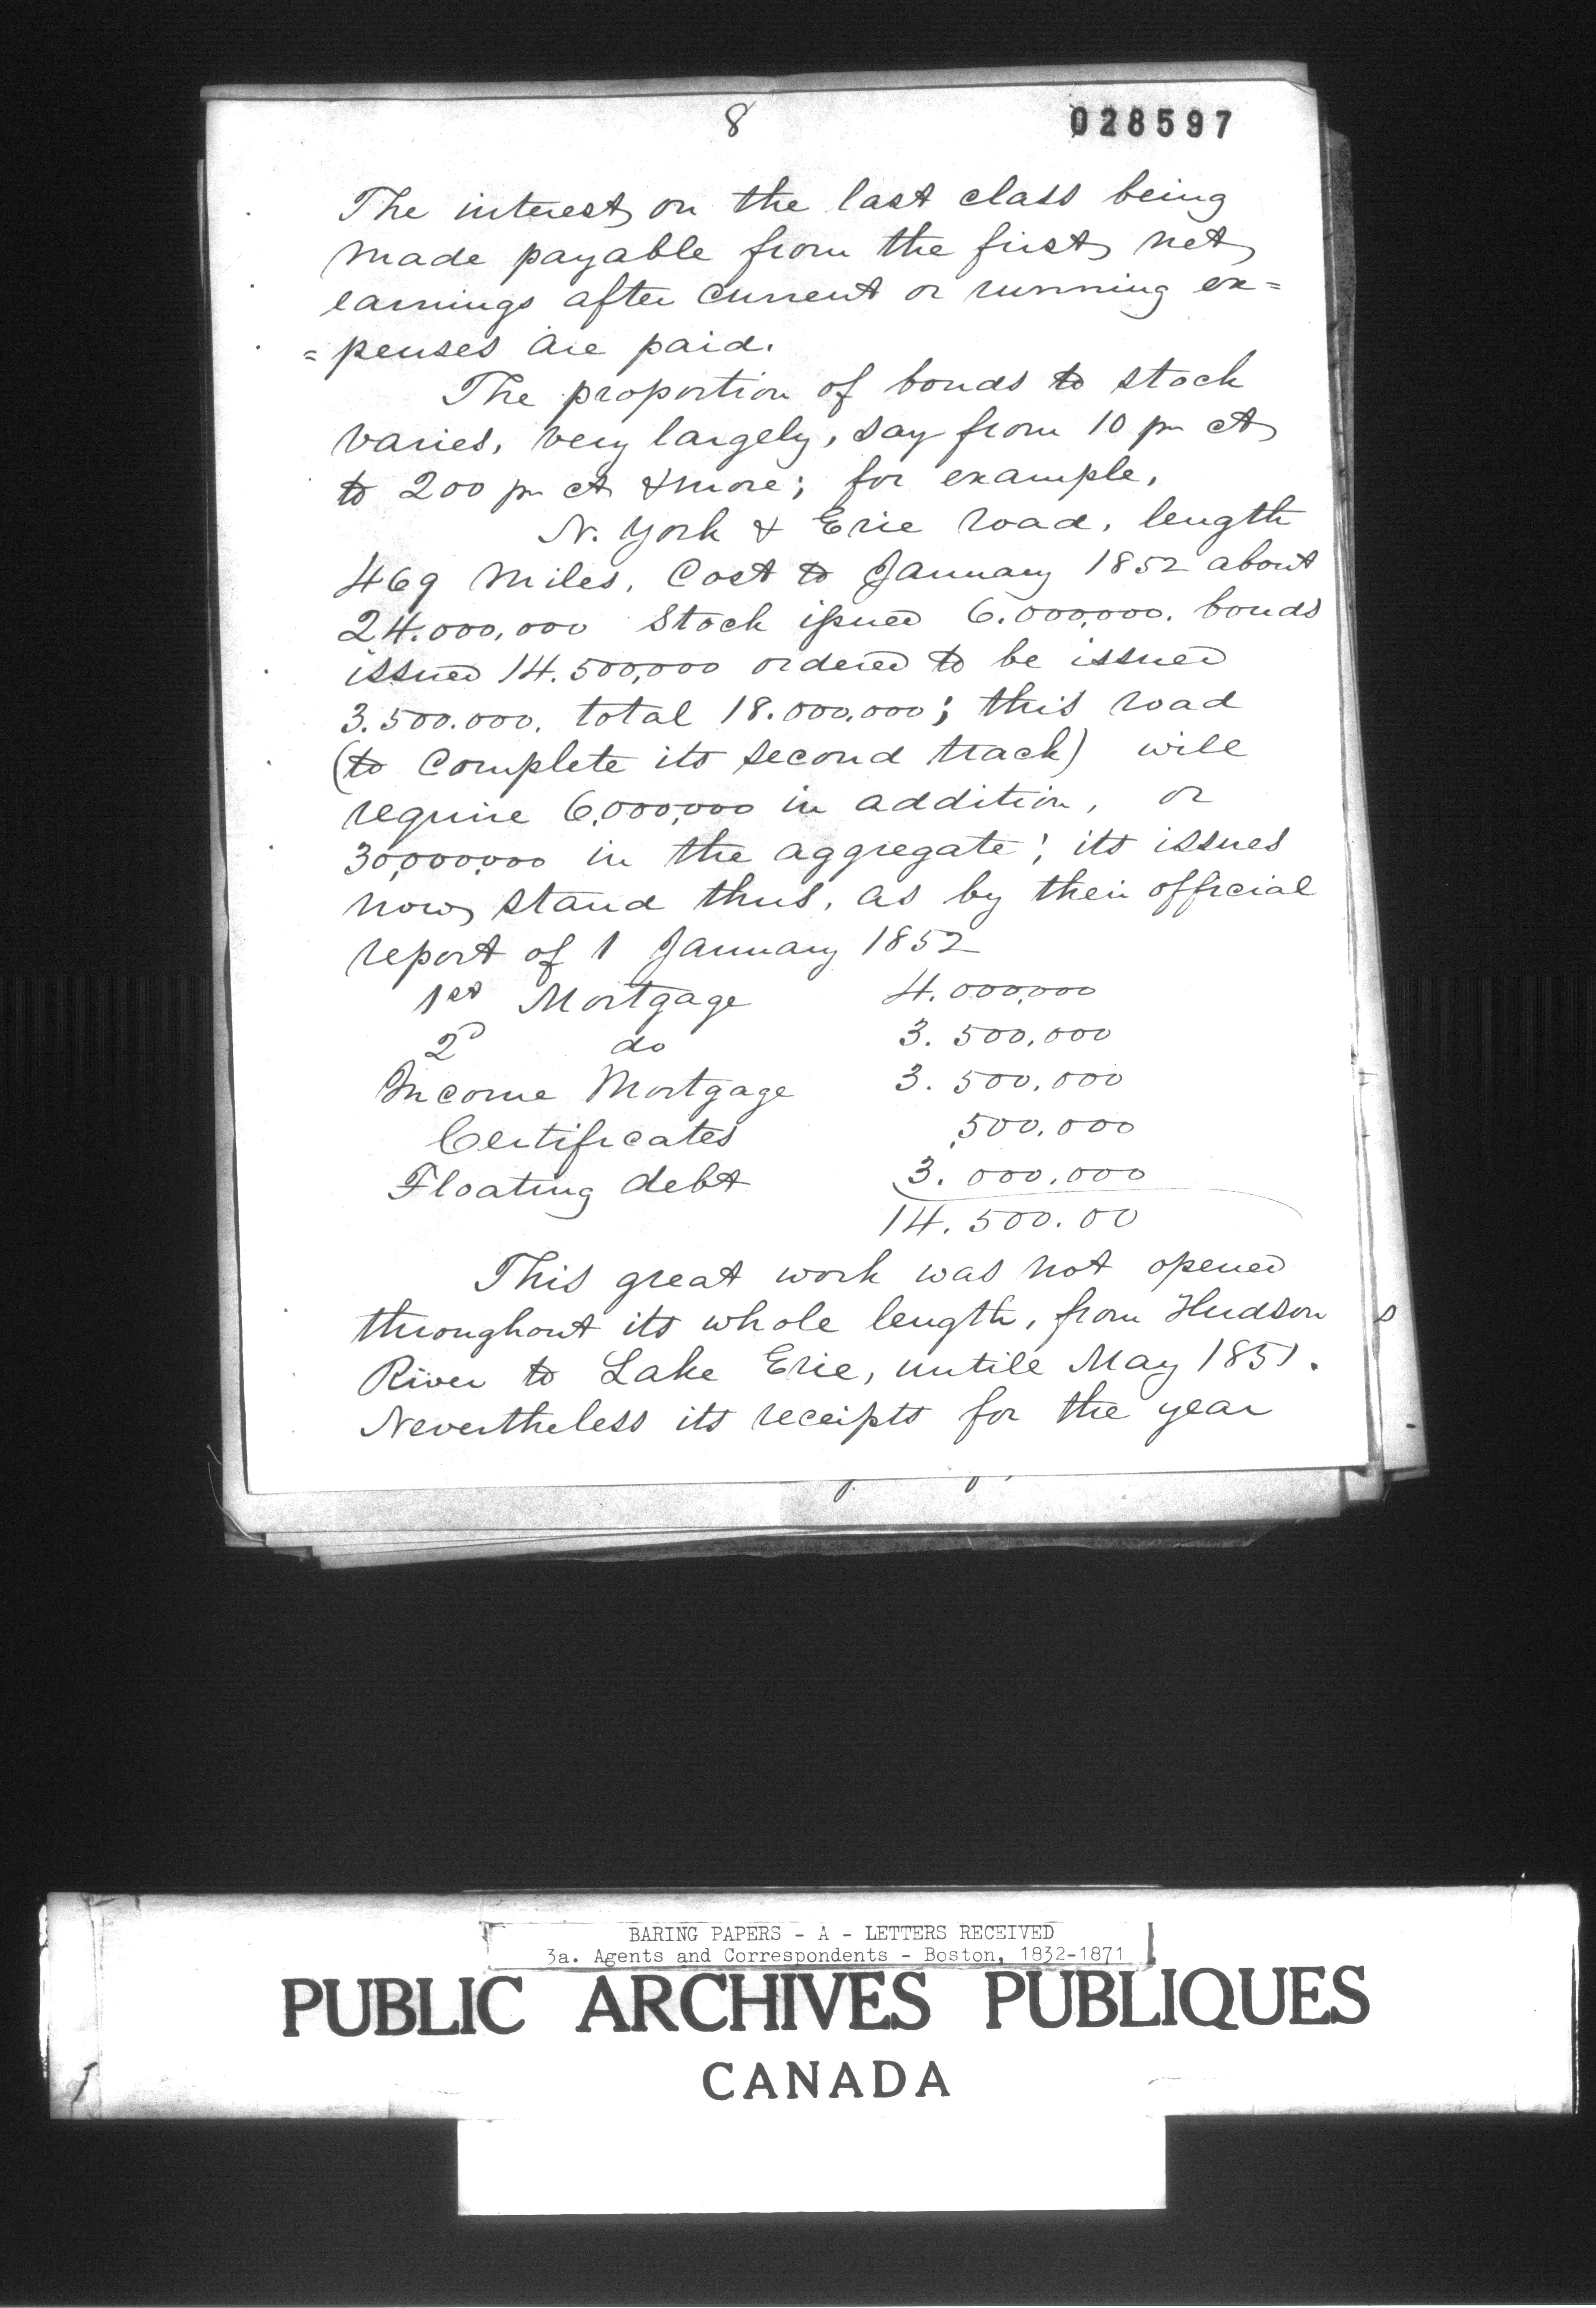 8
028597
The interest on the last class being
made payable from the first net
earnings after current or running ex=
=penses are paid.
The proportion of bonds to stock
varies, very largely, say from 10 pr ct
to 200 pr ct & more; for example,
N. York & Erie road, length
469 miles, Cost to January 1852 about
24.000,000 Stock issued 6.000,000. bonds
issued 14.500,000 ordered to be issued
3.500.000. total 18.000,000; this road
(to complete its second track) will
require 6,000,000 in addition, or
30,000,000 in the aggregate; its issues
now stand thus, as by their official
report of 1 January 1852
1st Mortgage 4.000,000
2d do 3.500,000
Income Mortgage 3.500,000
Certificates 500,000
Floating debt 3.000,000
14.500.00
This great work was not opened
throughout its whole length, from Hudson
River to Lake Erie, untill May 1851.
Nevertheless its receipts for the year
BARING PAPERS - A - LETTERS RECEIVED
3a. Agents and Correspondents - Boston, 1832-1871
PUBLIC ARCHIVES PUBLIQUES
CANADA